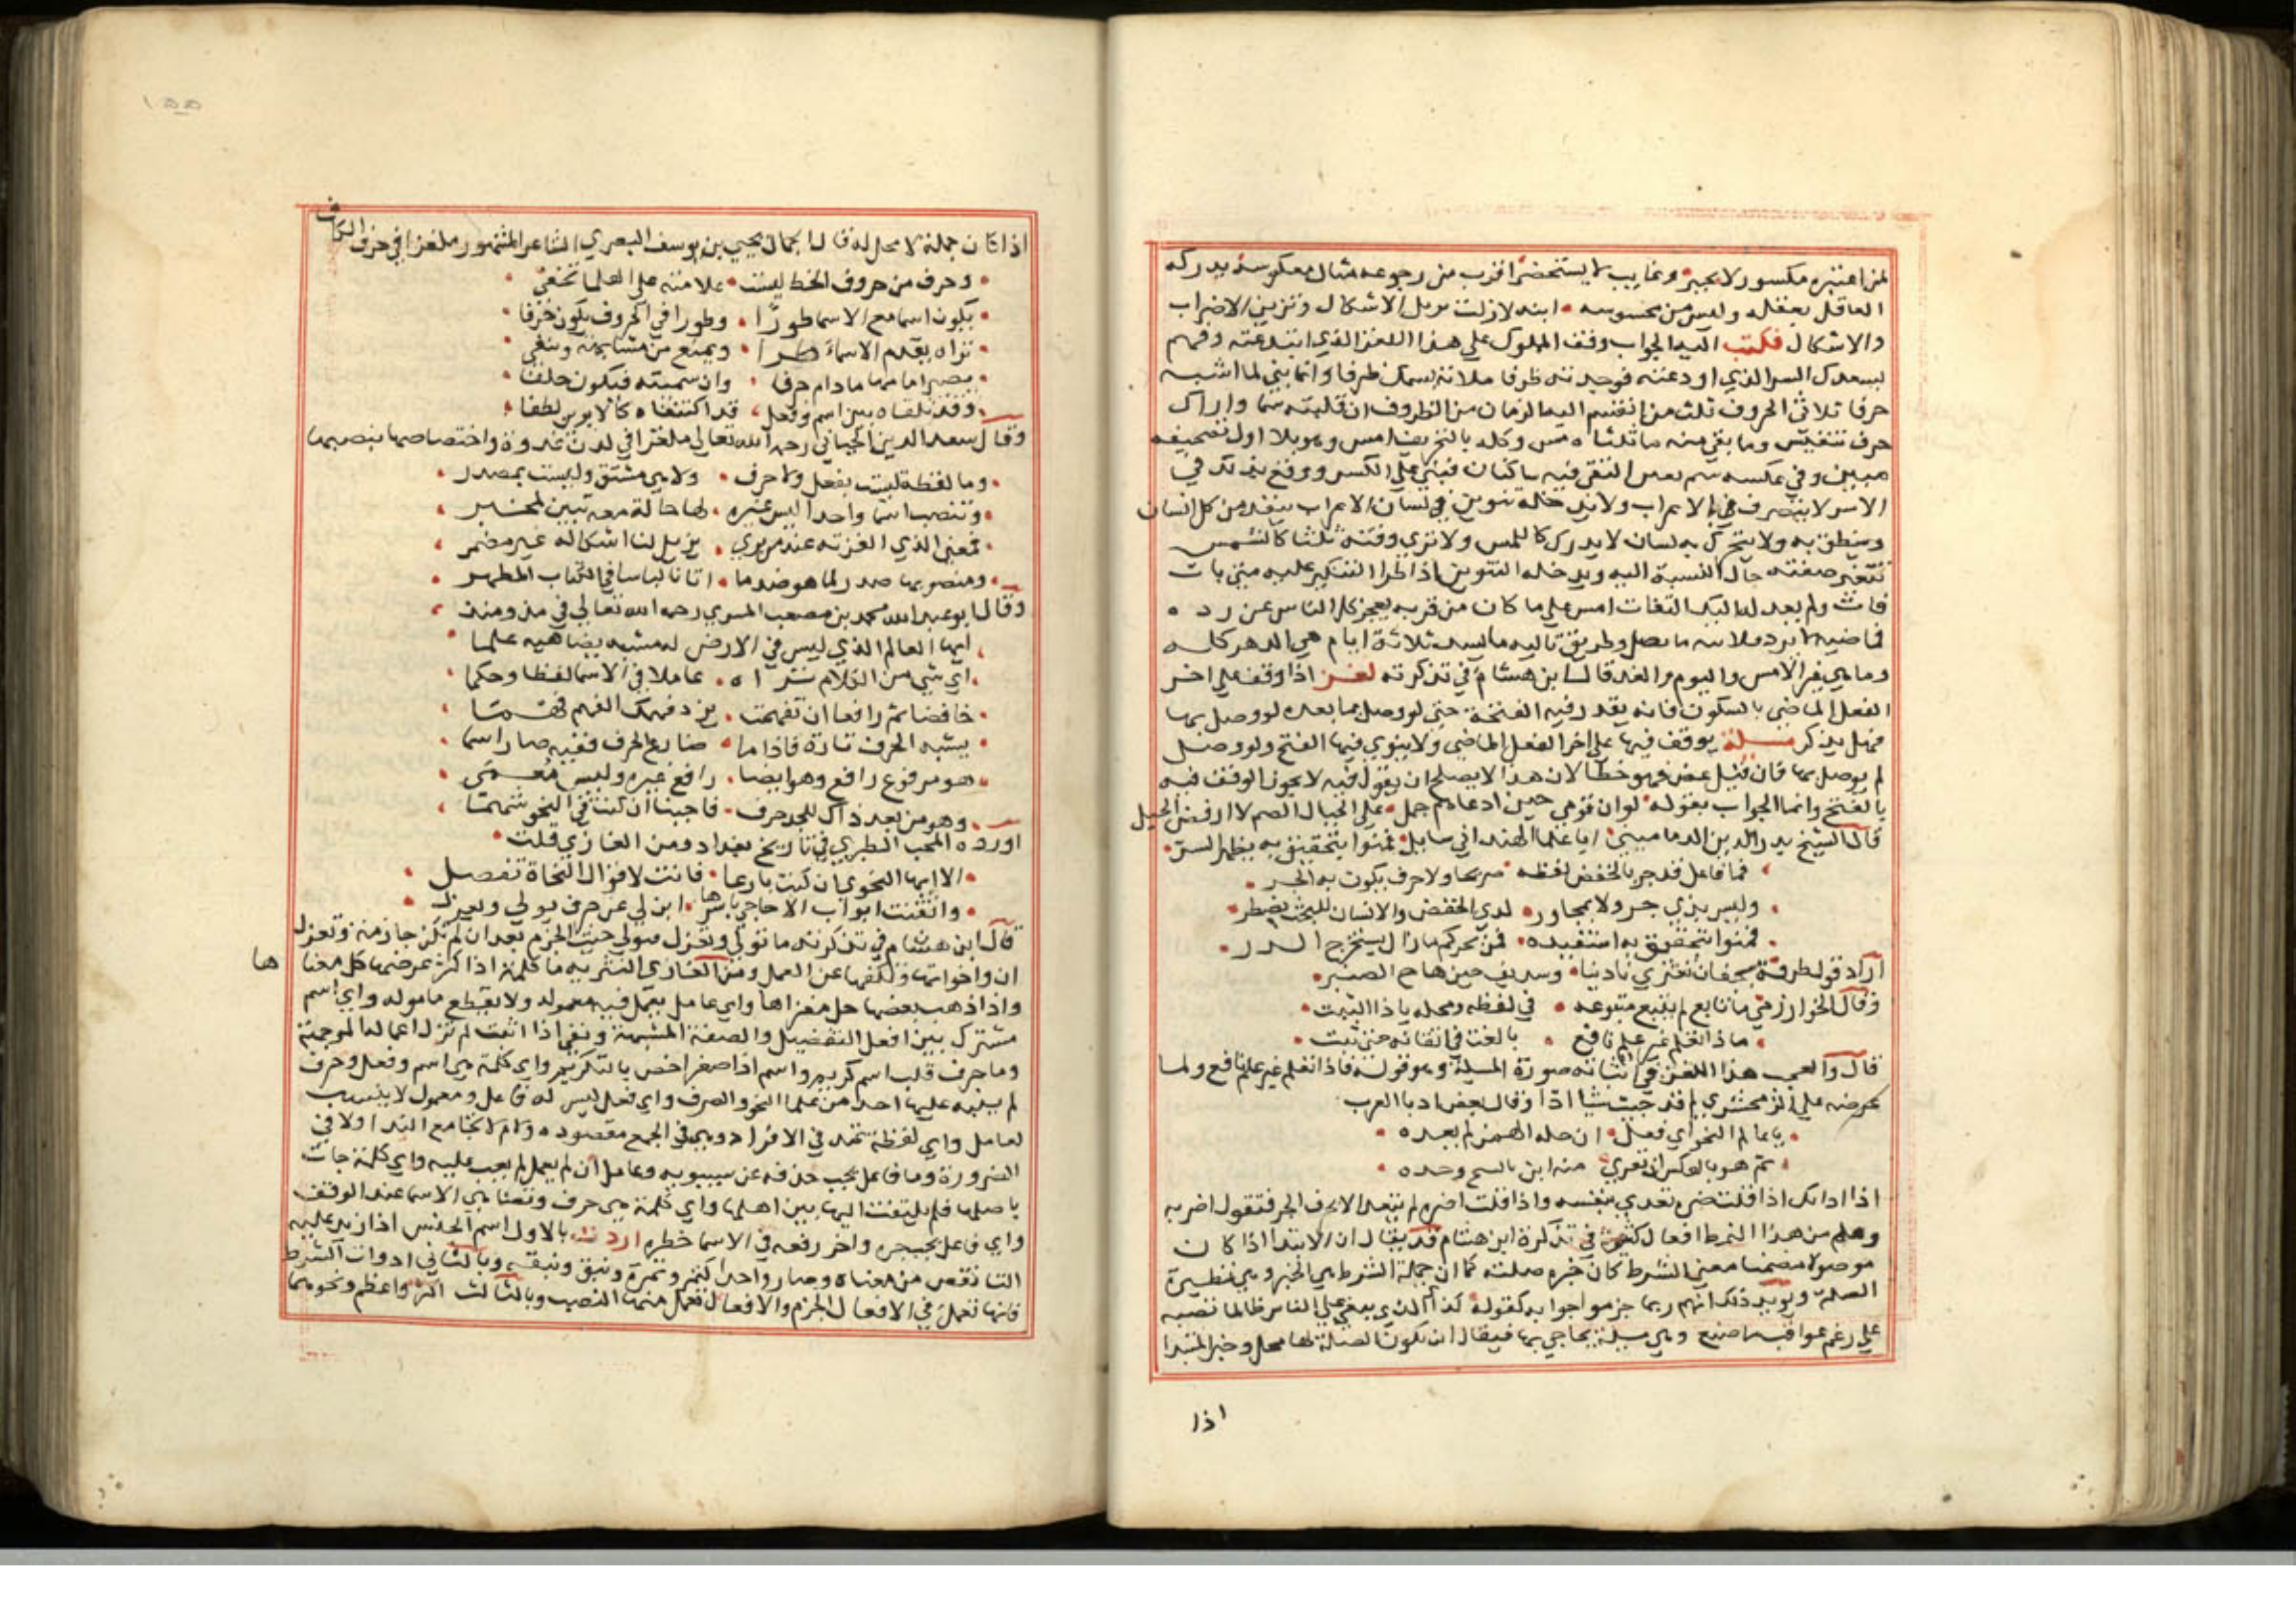 لمن اعتبره مكسور لا يجبر وغايب لا يستحضر اقرب من رجوعه مثال معكوسه يدركه
العاقل بعقله وليس من محسوسه ابنه لا زلت تزيل الاشكال وتزين الاضراب
والاشكال فكتب اليه الجواب وقف المملوك علي هذا اللغز الذي ابتدعته وفهم
بسعدك السر الذي اودعته فوجدته ظرفا ملاته بسمك ظرفا وانما بني لما اشبه
حرفا ثلاثي الحروف ثلث من انقسم اليه الزمان من الظروف ان قلبته سما واراك
حرف تنفيس وما بقي منه ما ثلثاه مس وكله بالتحريف امس وهو بلا اول تصحيفه
مبين وفي عكسه سم بعض التقي فيه ساكنان فبني علي الكسر ووقع بذلك في
الاسر لا يتصرف في الاعراب ولا يدخله تنوين في لسان الاعراب يبعد من كل انسان
وينطق به ولا يتحرك به لسان لا يدرك كاللمس ولا تري وقته ثلثا كالشمس
تتغير صفته حال النسبة اليه ويدخله التنوين اذا طرا التنكير عليه مبني بات
فات ولم يعد له اليك التفات امس علي ما كان من قربه يعجز كل الناس عن رده
فماضيه لا يرد وطريق تاليه ما يسد ثلاثة ايام هي الدهر كله
وما هي غير الامس واليوم والغد قال ابن هشام في تذكرته لغز اذا وقف علي اخر
الفعل الماضي بالسكون فانه يقدر فيه الفتحة حتي لو وصل بما بعده لو وصل بها
فهل يذكر مسيلة يوقف فيها علي اخر الفعل الماضي ولا ينوي فيها الفتح ولو وصل
لم يوصل بها فان قيل عض فهو خطا لان هذا لا يصلح ان يقول فيه لا يجوز الوقف فيه
بالفتح وانما الجواب بقوله لو ان قومي حين ادعوهم حمل علي الجبال الصم لا ارفض الجبل
قال الشيخ بدر الدين الدماميني ايا علما الهند اني سايل فمنوا بتحقيق به يظهر السر
فما فاعل قد جر بالخفض لفظه صريحا ولا حرف يكون به الجر
وليس بذي جر ولا بمجاور لدي الخفض والانسان للبحث يضطر
فمنوا بتحقيق به استفيده فمن بحركم ما زال يستخرج الدر
اراد قول طرفة بجفان تعتري نادينا وسديف حين هاج الصنبر
وقال الخوارزمي ما تابع لم يتبع متبوعه في لفظه ومحله يا ذا الثبت
ماذا بعلم غير علم نافع بالغت في اتقانه حتي ثبت
قال والعجب هذا اللغز في انشائه صورة المسيلة وهو قوله فاذا بعلم غير علم نافع ولما
عرضه علي الزمخشري لم قد جيت شيا ادا وقال بعض ادبا العرب
يا عالم النحو اي فعل ان حله الهمز لم يعده
ثم هو بالعكس ان تعري منه ابن بالسم وحده
اذا اداتك اذا قلت ضر تعدي بنفسه واذا قلت اضر لم يتعد الا بحرف الجر فتقول اضر به
وهلم من هذا النمط افعال كثيرة في تذكرة ابن هشام قد يقال ان الابتدا اذا كان
موصولا مضمنا معني الشرط كان خبره صلته كما ان جملة الشرط هي الخبر وهي نظيرة
الصلة ويويد ذلك انهم ربما جزموا جوابه كقوله كذاك الذي يبغي علي الناس ظالما تصبه
علي رغم عواقب ما صنع وهي مسيلة يحاجي بها فيقال ان تكون الصلة لها محل وخبر المبتدا
اذا
اذا كان جملة لا محل له قال الجمال يحيي بن يوسف البصري الشاعر المشهور ملغزا في حرف الكاف
وحرف من حروف الخط ليست علامته علي العلما تخفي
يكون اسما مع الاسما طورا وطورا في الحروف يكون حرفا
تراه يقدم الاسماء طرا ويمنع من مشابهة وينفي
يصير امامها ما دام حرفا وان سميته فيكون خلفا
وقد تلقاه بين اسم وفعل قد اكتنفاه كالابوين لطفا
وقال سعد الدين الجياني رحمه الله تعالي ملغزا في لدن غدوة واختصاصها بنصبها
وما لفظة ليست بفعل ولا حرف ولا هي مشتق وليست بمصدر
وتنصب اسما واحدا ليس غيره لها حالة معه تبين لمخبر
فمعني الذي الغزته عند من يري يزيل لنا اشكاله غير مضمر
ومنصوبها صدر لما هو ضد ما اتانا لباسا في الكتاب المطهر
وقال ابو عبد الله محمد بن مصعب المسري رحمه الله تعالي في مذ ومنذ
ايها العالم الذي ليس في الارض له مشبه يضاهيه علما
اي شي من الكلام تراه عاملا في الاسما لفظا وحكما
خافضا ثم رافعا ان تفهمت يزد فهمك الفهم فهما
يشبه الحرف تارة فاذا ما ضارع الحرف نفسه صار اسما
هو مرفوع رافع وهو ايضا رافع غيره وليس معمي
وهو من بعد ذاك للجر حرف فاجبنا ان كنت في النحو شهما
اورده المحب الطبري في تاريخ بغداد ومن الغازي قلت
الا ايها النحوي ان كنت بارعا فانت لاقوال النحاة تفصل
واتقنت ابواب الاحاجي باسرها ابن لي عن حرف يولي ويعزل
قال ابن هشام في تذكرته ما تولي وتعزل سولي حيث الجزم بعد ان لم تكن جازمة وتعزل
ان واخواتها وتكفها عن العمل ومن الغازي النثرية ما كلمة اذا كثر عرضها كل معناها
واذا ذهب بعضها حل مغزاها واي عامل يعمل فيه معموله ولا يقطع مامولـه واي اسم
مشترك بين افعل التفضيل والصفة المشبهة ونفي اذا اثبت لم تزل اعماله الموجهة
وما حرف قلب اسم كريم واسم اذا صغر اختص بالتكريم واي كلمة هي اسم وفعل وحرف
لم ينبه عليها احد من علما النحو والصرف واي فعل ليس له فاعل ومعمول لا ينسب
لعامل واي لفظة تعد في الافراد وهي في الجمع مقصوده ولام لا تجامع الندا ولا في
الضرورة وما فاعل يجب حذفه عن سيبويه وعامل ان لم يعمل لم يعب عليه واي كلمة جات
باصلها فلم يلتفت اليها بين اهلها واي كلمة هي حرف وتعنا هي الاسما عند الوقف
واي فاعل يجب جره واخر رفعه في الاسما خطره اردت بالاول اسم الجنس اذا زيد عليه
التا نقص من معناه وصار واحدا كتمر وتمرة ونبق ونبقه وبالثاني ادوات الشرط
فانها تعمل في الافعال الجزم والافعال تعمل فيها النصب وبالثالث اكبر واعظم ونحوهما